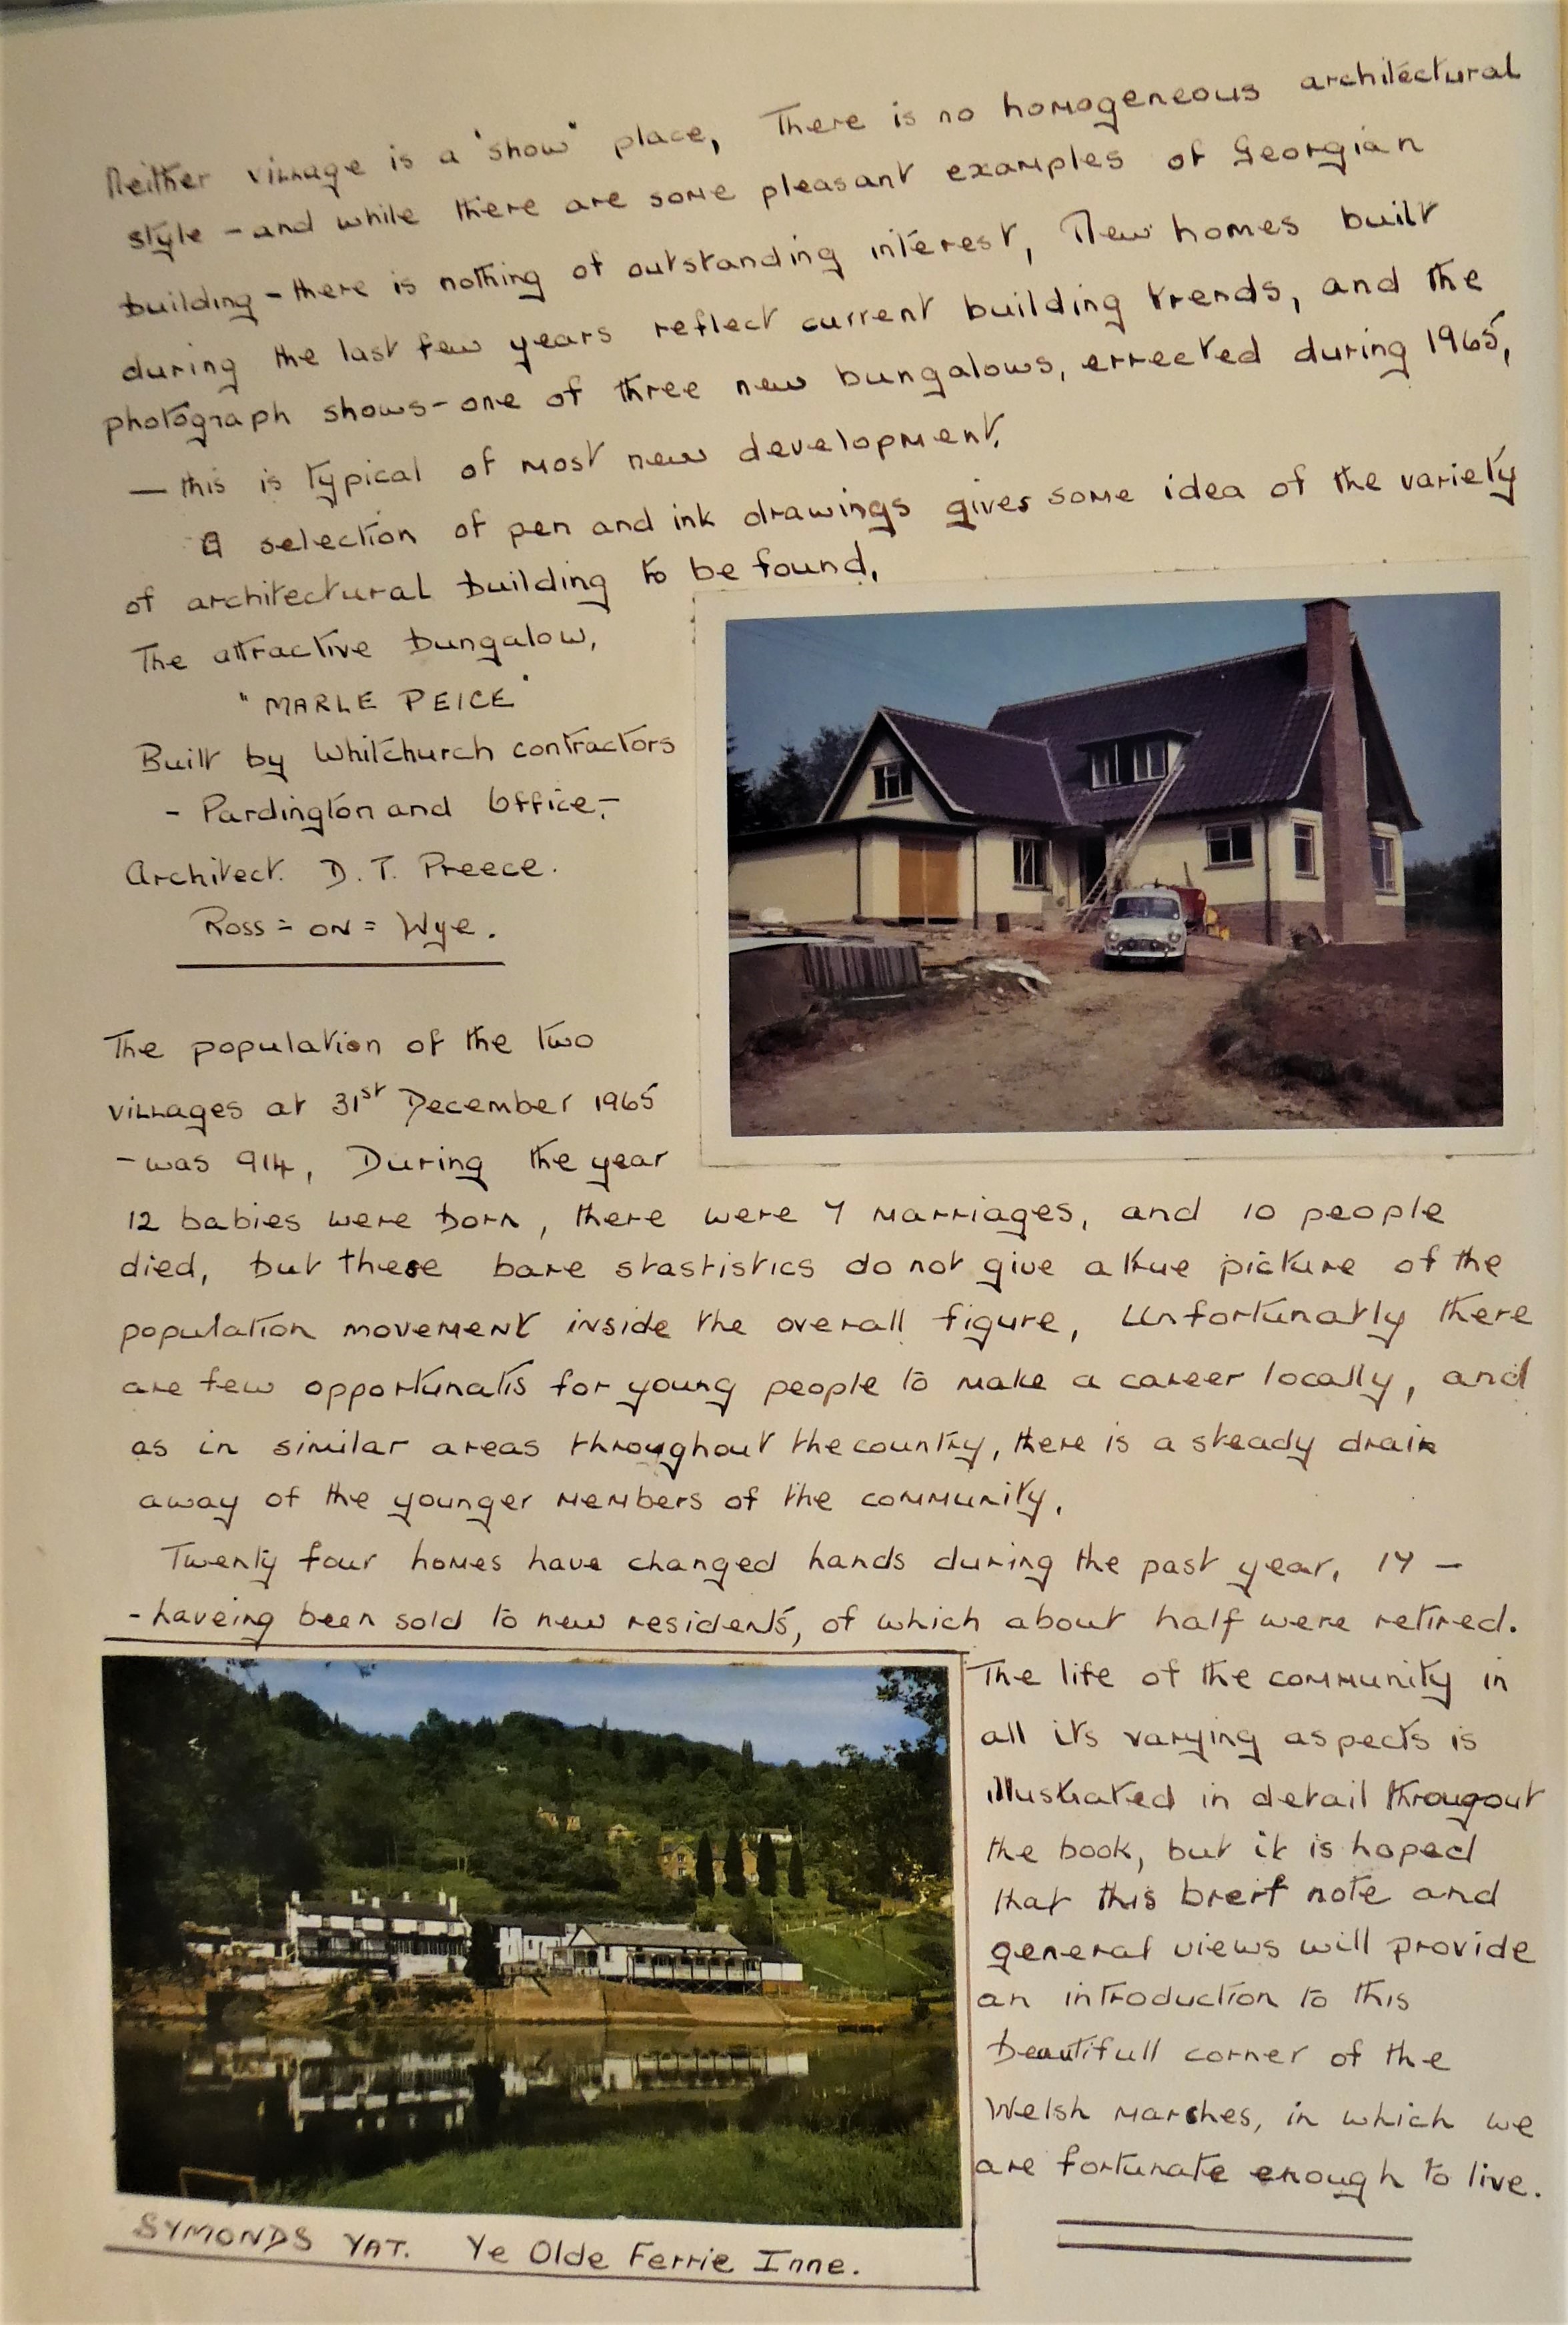 Neither village is a "show" place, There is no homogeneous architectural
style - and while there are some pleasant examples of Georgian
building - there is nothing of outstanding interest, New homes built
during the last few years reflect current building trends, and the
photograph shows - one of three new bungalows, errected during 1965,
— this is typical of most new development.
A selection of pen and ink drawings gives some idea of the variety
of architectural building to be found,
The attractive bungalow,
"MARLE PEICE"
Built by Whitchurch contractors
- Pardington and Office,-
Architect. D. T. Preece.
Ross = on = Wye.
The population of the two
villages at 31st December 1965
- was 914, During the year
12 babies were born, there were 7 marriages, and 10 people
died, but these bare stastistics do not give a true picture of the
population movement inside the overall figure, Unfortunatly there
are few opportunatis for young people to make a career locally, and
as in similar areas throughout the country, there is a steady drain
away of the younger members of the community,
Twenty four homes have changed hands during the past year, 17 —
- haveing been sold to new residents, of which about half were retired.
The life of the community in
all its varying aspects is
illustrated in detail througout
the book, but it is hoped
that this breif note and
general views will provide
an introduction to this
beautifull corner of the
Welsh Marches, in which we
are fortunate enough to live.
SYMONDS YAT. Ye Olde Ferrie Inne.